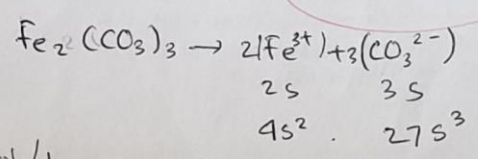 Fe₂(CO₃)₃ → 2(Fe³⁺)+3(CO₃²⁻)
2s 3s
4s² . 27s³